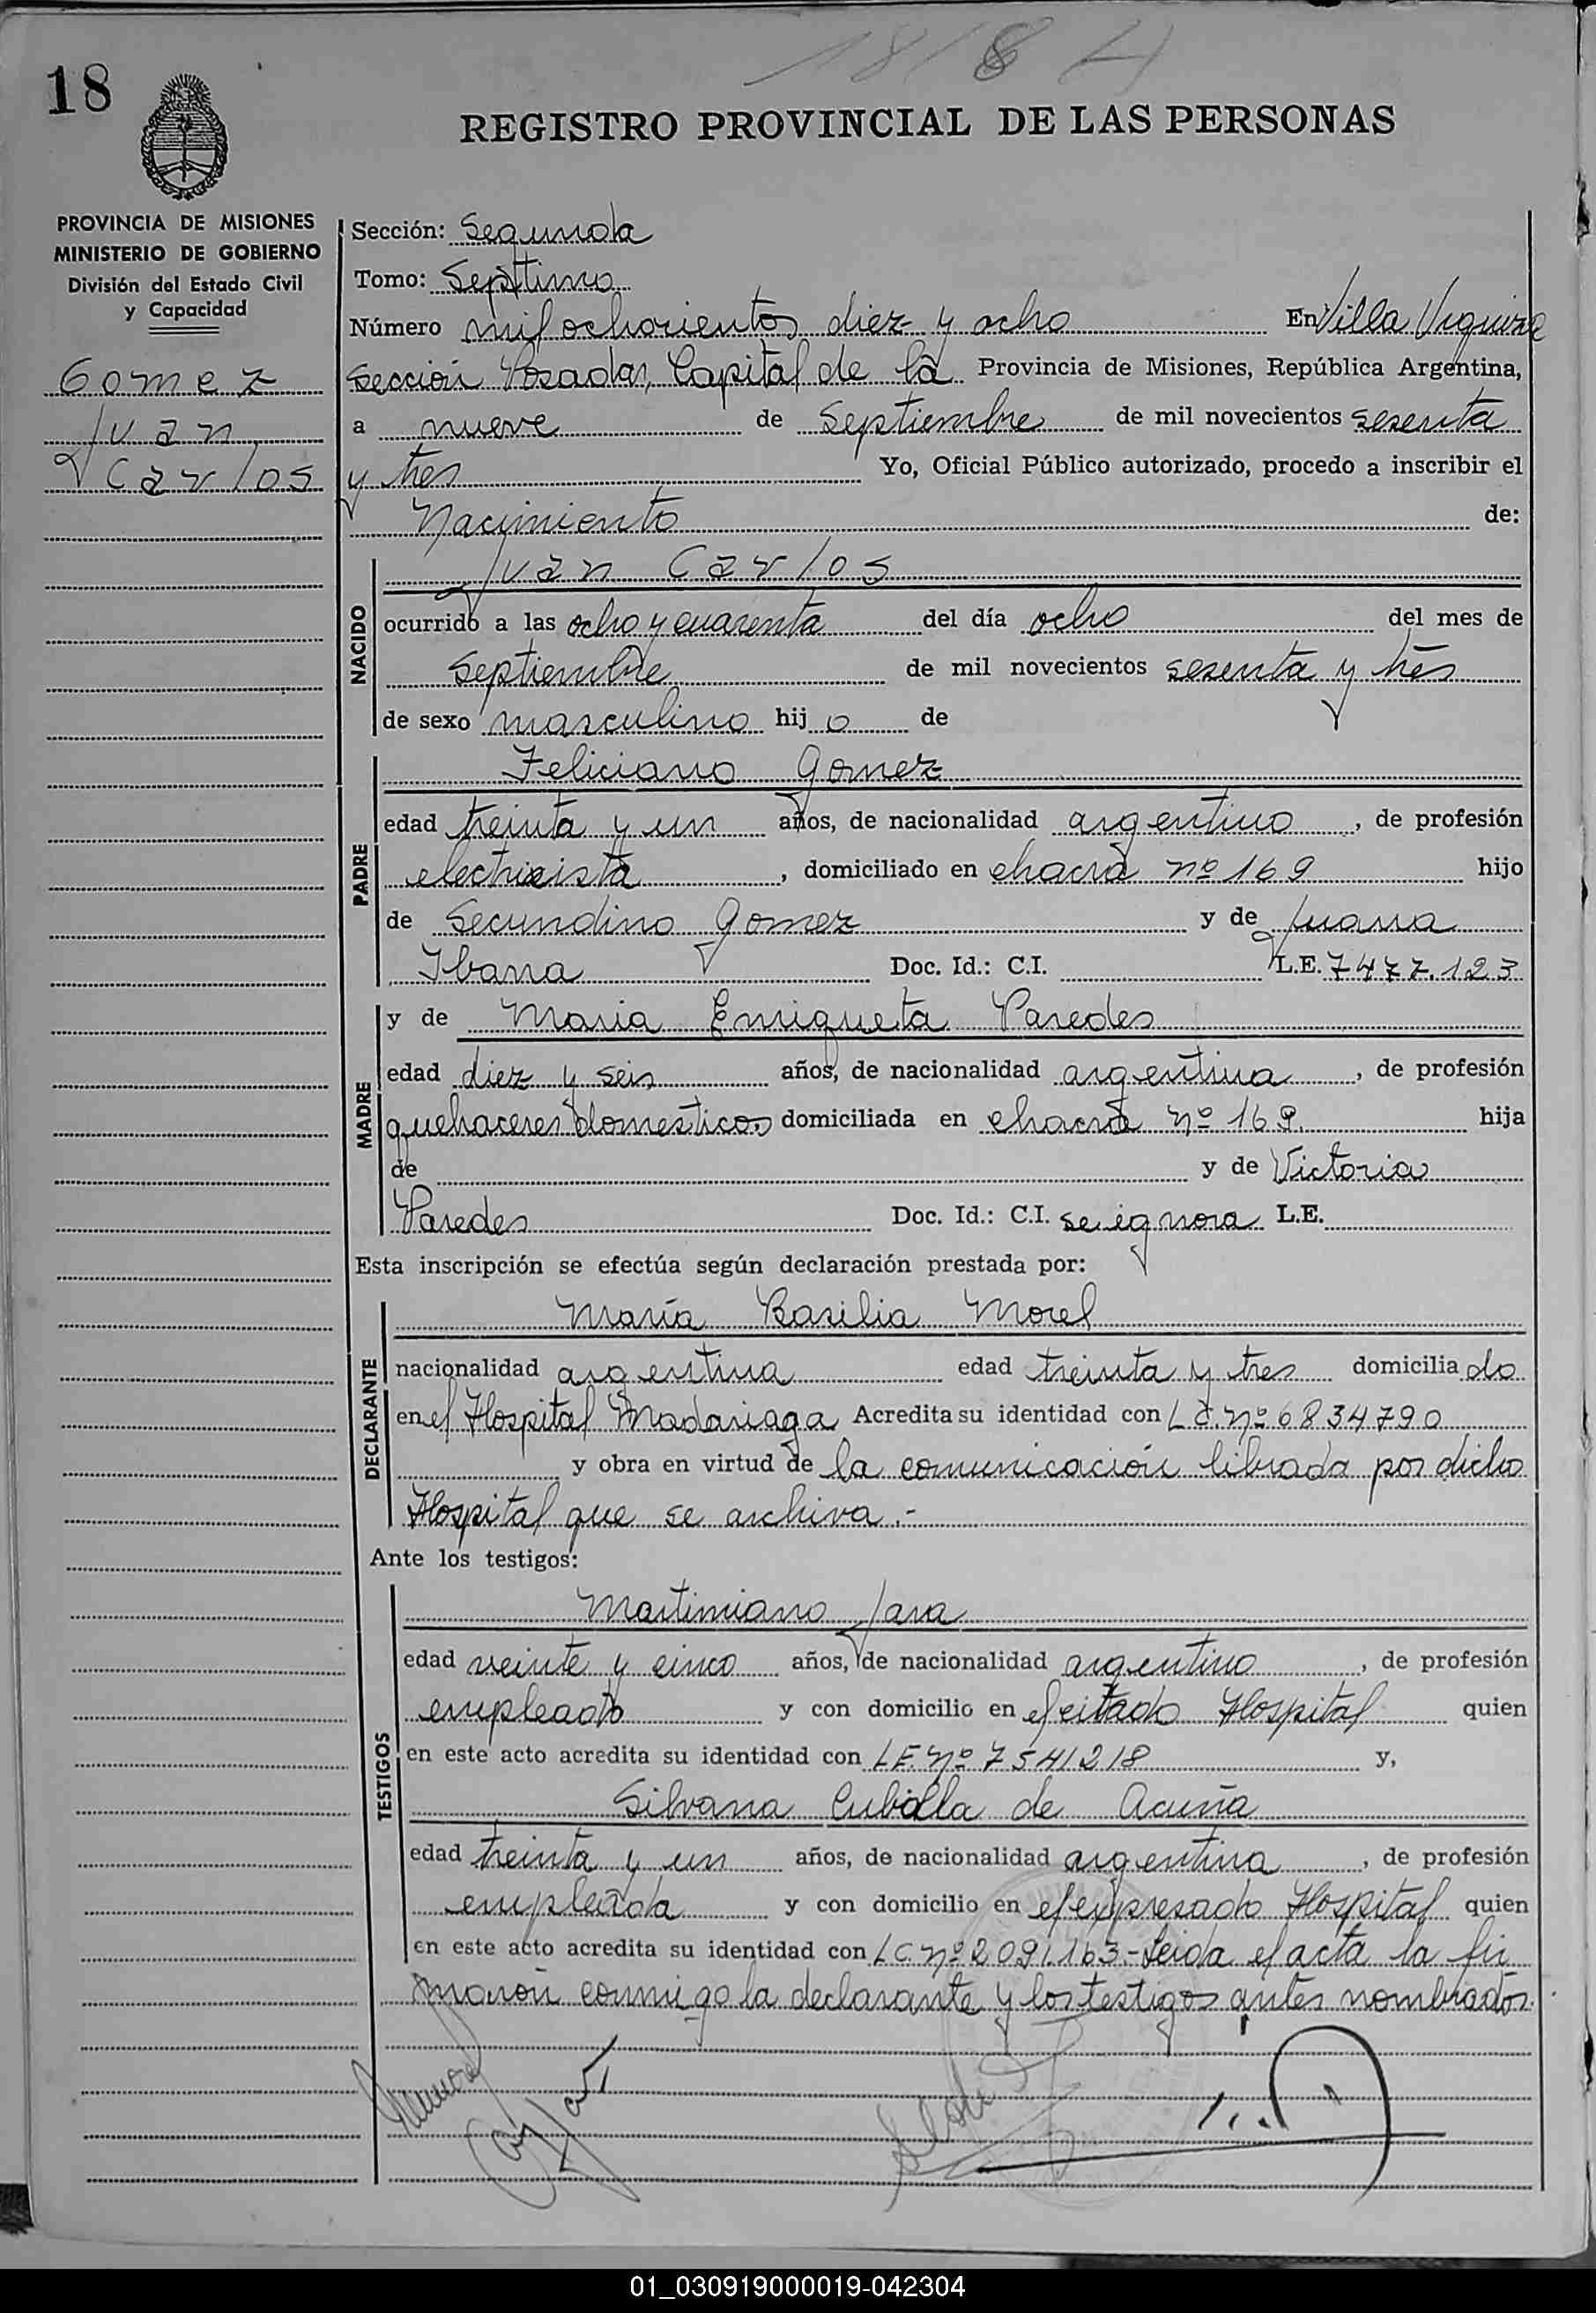 18
REGISTRO PROVINCIAL DE LAS PERSONAS
PROVINCIA DE MISIONES
MINISTERIO DE GOBIERNO
División del Estado Civil
y Capacidad
Gomez
Juan
Carlos
Sección: Segunda
Tomo: Septtimo
Número mil ochocientos diez y ocho En Villa Urquiza
Sección Posadas, Capital de la Provincia de Misiones, República Argentina,
a nueve de Septiembre de mil novecientos sesenta
y tres Yo, Oficial Público autorizado, procedo a inscribir el
Nacimiento de:
NACIDO
Juan Carlos
ocurrido a las ocho y cuarenta del día ocho del mes de
Septiembre de mil novecientos sesenta y tres
de sexo masculino hij o de
PADRE
Feliciano Gomez
edad treinta y un años, de nacionalidad argentino, de profesión
electricista, domiciliado en chacra nº 169 hijo
de Secundino Gomez y de Juana
Ibana Doc. Id.: C.I. L.E. 7477.123
MADRE
y de Maria Enriqueta Paredes
edad diez y seis años, de nacionalidad argentina, de profesión
quehaceres domesticos domiciliada en chacra nº 169. hija
de y de Victoria
Paredes Doc. Id.: C.I. se ignora L.E.
Esta inscripción se efectúa según declaración prestada por:
DECLARANTE
María Basilia Morel
nacionalidad argentina edad treinta y tres domicilia do
en el Hospital Madariaga Acredita su identidad con L C. nº 6834790
y obra en virtud de la comunicación librada por dicho
Hospital que se archiva.-
Ante los testigos:
TESTIGOS
Martimiano Jara
edad veinte y cinco años, de nacionalidad argentino, de profesión
empleado y con domicilio en el citado Hospital quien
en este acto acredita su identidad con LE. nº 7541218 y,
Silvana Cubilla de Acuña
edad treinta y un años, de nacionalidad argentina, de profesión
empleada y con domicilio en el expresado Hospital quien
en este acto acredita su identidad con LC nº 2091.163.- Leida el acta la fir
maron conmigo la declarante y los testigos antes nombrados.
01_030919000019-042304